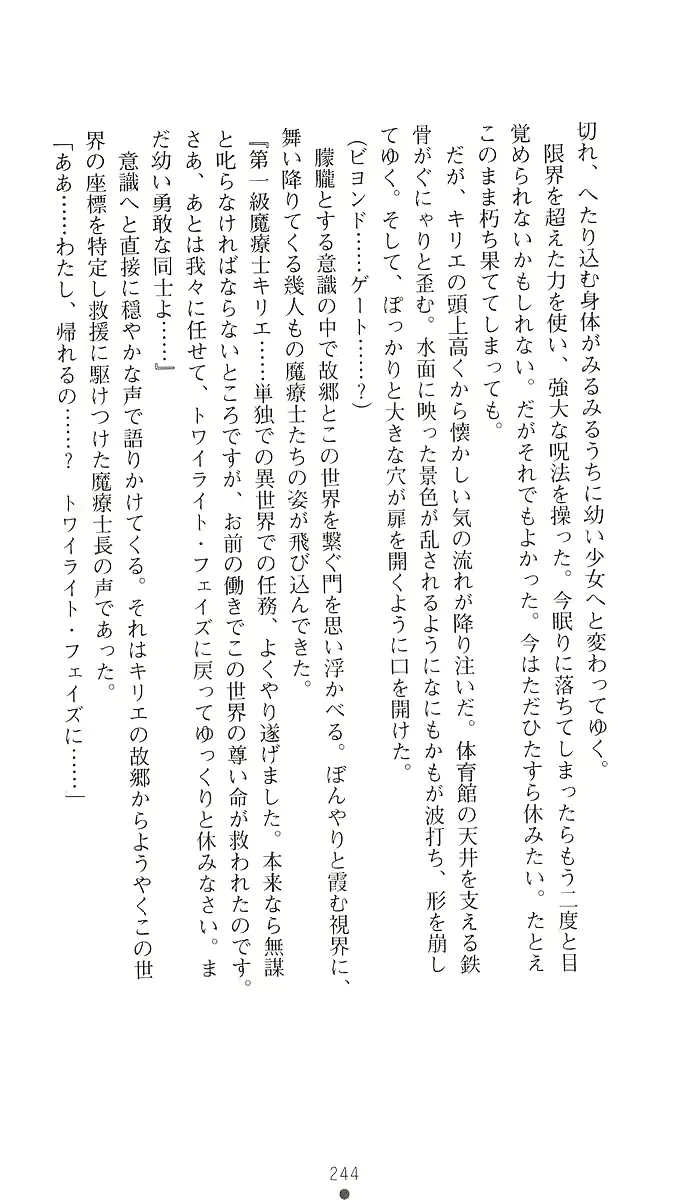 切れ、へたり込む身体がみるみるうちに幼い少女へと変わってゆく。
　限界を超えた力を使い、強大な呪法を操った。今眠りに落ちてしまったらもう二度と目
覚められないかもしれない。だがそれでもよかった。今はただひたすら休みたい。たとえ
このまま朽ち果ててしまっても。
　だが、キリエの頭上高くから懐かしい気の流れが降り注いだ。体育館の天井を支える鉄
骨がぐにゃりと歪む。水面に映った景色が乱されるようになにもかもが波打ち、形を崩し
てゆく。そして、ぽっかりと大きな穴が扉を開くように口を開けた。
（ビヨンド……ゲート……？）
　朦朧とする意識の中で故郷とこの世界を繋ぐ門を思い浮かべる。ぼんやりと霞む視界に、
舞い降りてくる幾人もの魔療士たちの姿が飛び込んできた。
『第一級魔療士キリエ……単独での異世界での任務、よくやり遂げました。本来なら無謀
と叱らなければならないところですが、お前の働きでこの世界の尊い命が救われたのです。
さあ、あとは我々に任せて、トワイライト・フェイズに戻ってゆっくりと休みなさい。ま
だ幼い勇敢な同士よ……』
　意識へと直接に穏やかな声で語りかけてくる。それはキリエの故郷からようやくこの世
界の座標を特定し救援に駆けつけた魔療士長の声であった。
「ああ……わたし、帰れるの……？　トワイライト・フェイズに……」
244